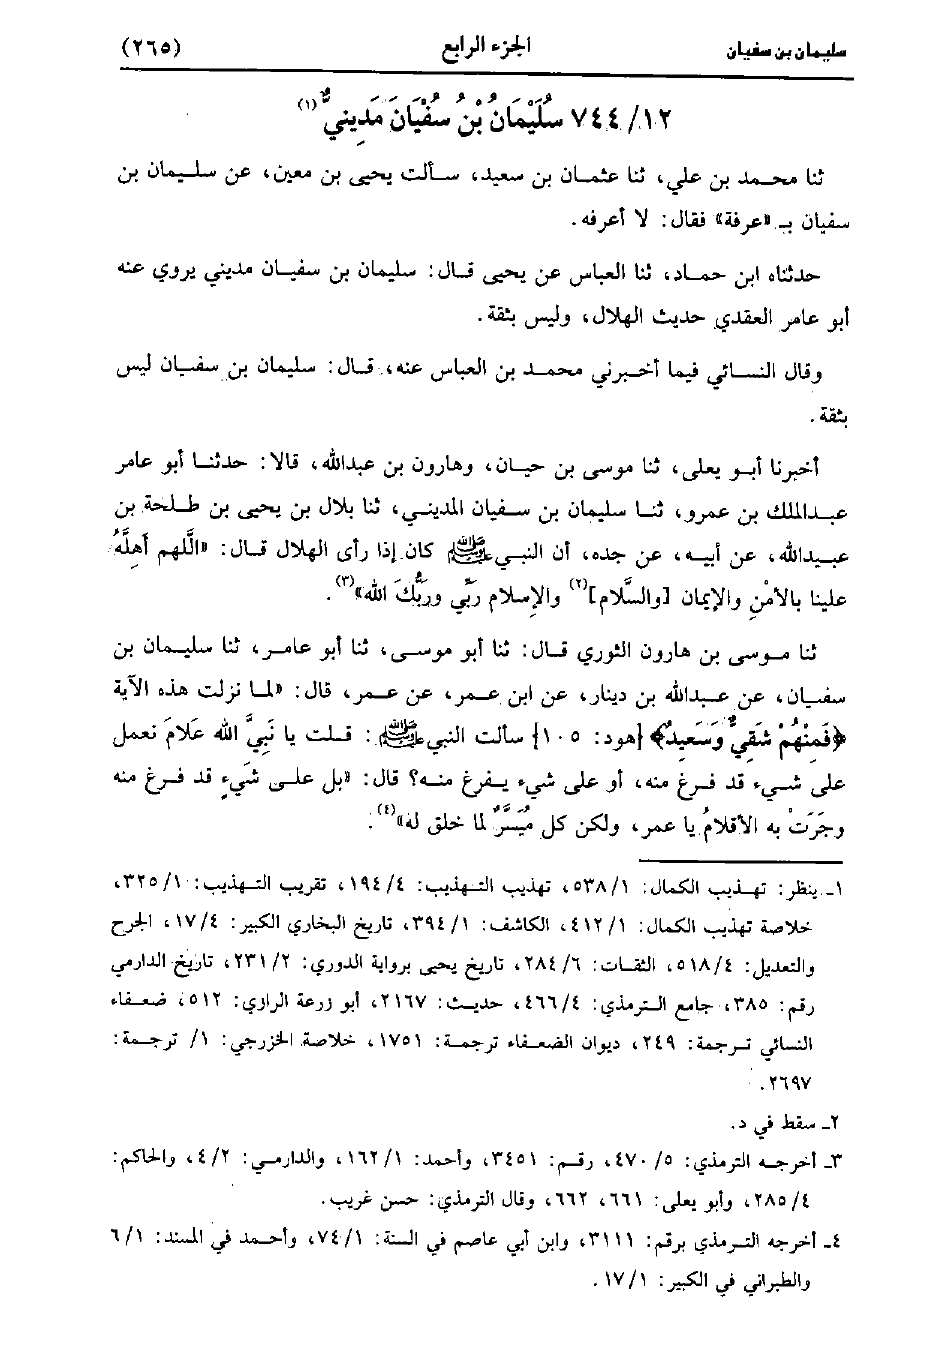 سليمان بن سفيان الجزء الرابع (٢٦٥)
٧٤٤/١٢ سُلَيْمَانُ بْنُ سُفْيَانَ مَدِينِيٌّ(١)
ثنا محمد بن علي، ثنا عثمان بن سعيد، سألت يحيى بن معين، عن سليمان بن
سفيان بـ «عرفة» فقال: لا أعرفه.
حدثناه ابن حماد، ثنا العباس عن يحيى قال: سليمان بن سفيان مديني يروي عنه
أبو عامر العقدي حديث الهلال، وليس بثقة.
وقال النسائي فيما أخبرني محمد بن العباس عنه، قال: سليمان بن سفيان ليس
بثقة.
أخبرنا أبو يعلى، ثنا موسى بن حيان، وهارون بن عبدالله، قالا: حدثنا أبو عامر
عبدالملك بن عمرو، ثنا سليمان بن سفيان المديني، ثنا بلال بن يحيى بن طلحة بن
عبيدالله، عن أبيه، عن جده، أن النبي ﷺ كان إذا رأى الهلال قال: «اللَّهم أهلَّهُ
علينا بالأمْنِ والإيمَان [والسَّلام](٢) والإِسلام ربِّي وربُّكَ الله»(٣).
ثنا موسى بن هارون الثوري قال: ثنا أبو موسى، ثنا أبو عامر، ثنا سليمان بن
سفيان، عن عبدالله بن دينار، عن ابن عمر، عن عمر، قال: «لما نزلت هذه الآية
﴿فَمِنْهُمْ شَقِيٌّ وَسَعِيدٌ﴾ [هود: ١٠٥] سألت النبي ﷺ: قلت يا نَبِيَّ الله عَلامَ نعمل
على شيء قد فرغ منه، أو على شيء يفرغ منه؟ قال: «بل على شَيءٍ قد فرغ منه
وجَرَتْ به الأقلامُ يا عمر، ولكن كل مُيَسَّرٌ لما خلق له»(٤).
١ـ ينظر: تهذيب الكمال: ٥٣٨/١، تهذيب التهذيب: ١٩٤/٤، تقريب التهذيب: ٣٢٥/١،
خلاصة تهذيب الكمال: ٤١٢/١، الكاشف: ٣٩٤/١، تاريخ البخاري الكبير: ١٧/٤، الجرح
والتعديل: ٥١٨/٤، الثقات: ٢٨٤/٦، تاريخ يحيى برواية الدوري: ٢٣١/٢، تاريخ الدارمي
رقم: ٣٨٥، جامع الترمذي: ٤٦٦/٤، حديث: ٢١٦٧، أبو زرعة الرازي: ٥١٢، ضعفاء
النسائي ترجمة: ٢٤٩، ديوان الضعفاء ترجمة: ١٧٥١، خلاصة الخزرجي: ١/ ترجمة:
٢٦٩٧.
٢ـ سقط في د.
٣ـ أخرجه الترمذي: ٤٧٠/٥، رقم: ٣٤٥١، وأحمد: ١٦٢/١، والدارمي: ٤/٢، والحاكم:
٢٨٥/٤، وأبو يعلى: ٦٦١، ٦٦٢، وقال الترمذي: حسن غريب.
٤ـ أخرجه الترمذي برقم: ٣١١١، وابن أبي عاصم في السنة: ٧٤/١، وأحمد في المسند: ٦/١
والطبراني في الكبير: ١٧/١.